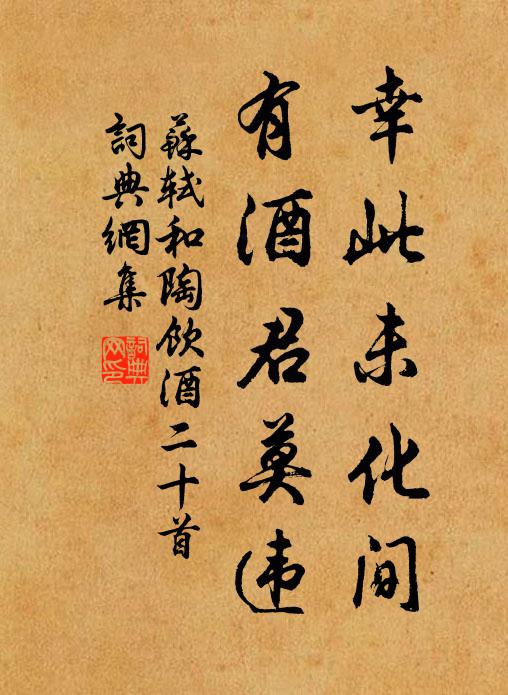 幸此未化间
有酒君莫违
蘇軾和陶飲酒二十首
詞典網集
詞典網印